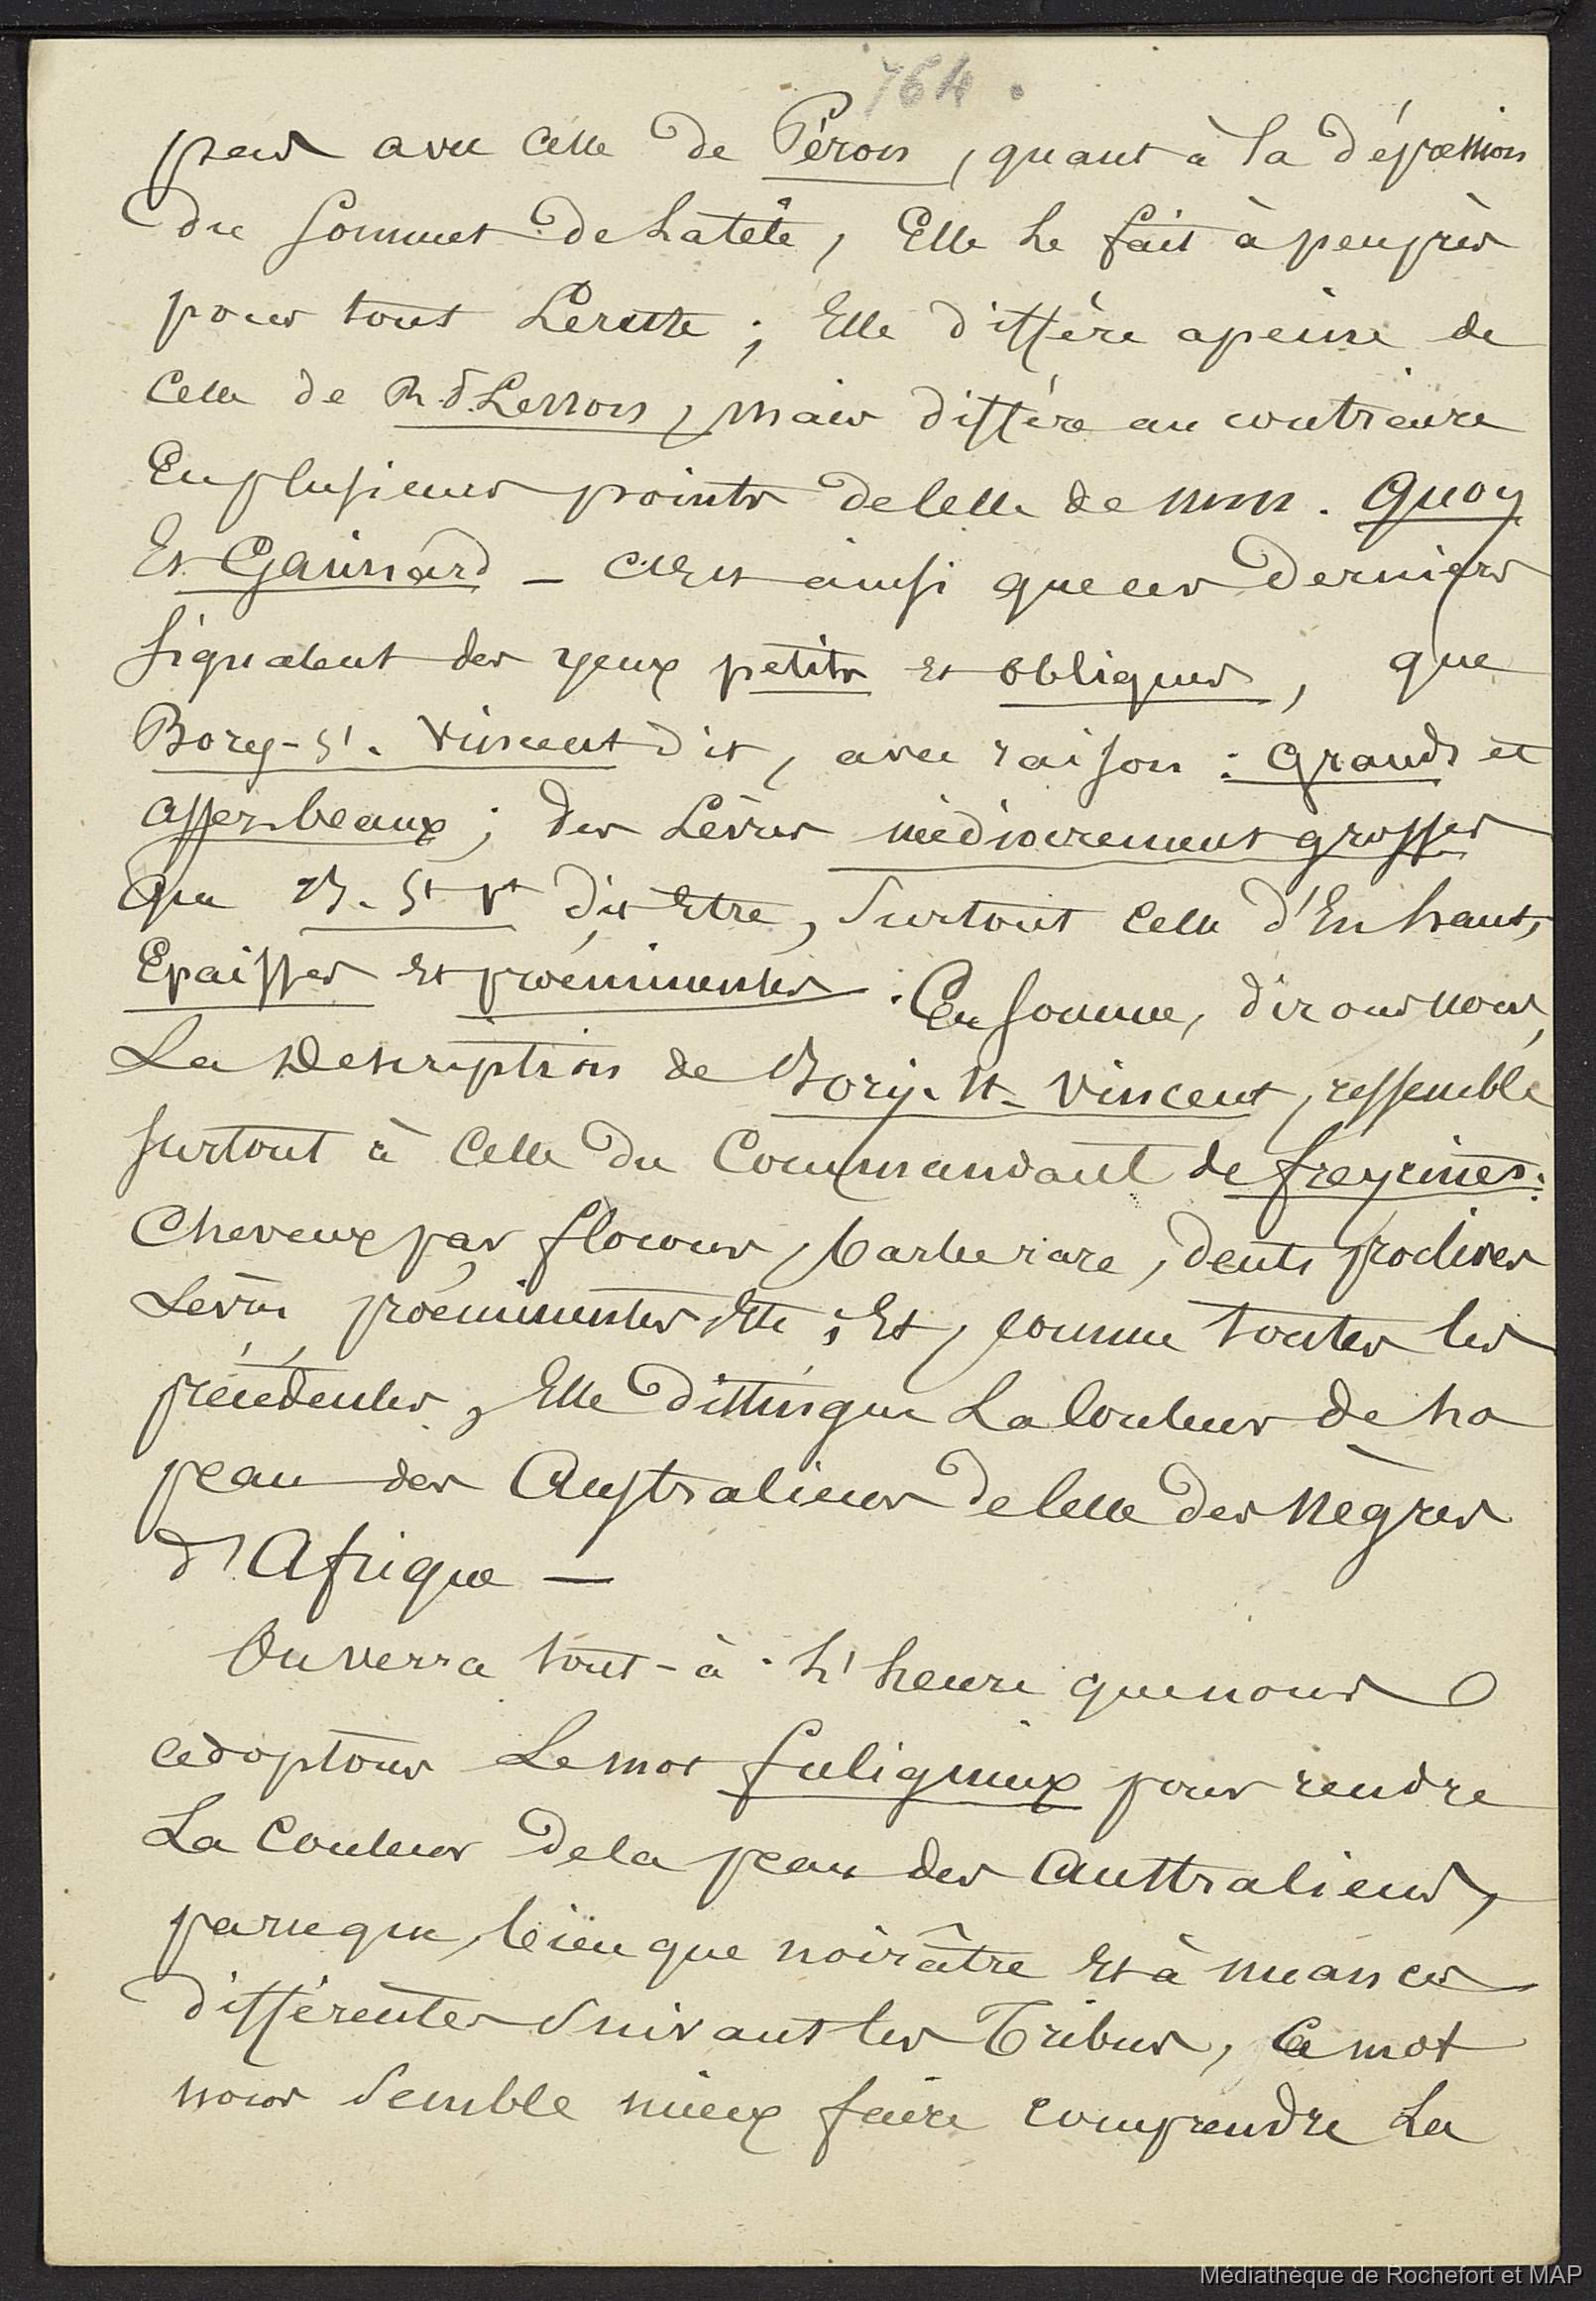 764.
peu avec celle de Péron, quant à la dépression
du sommet de la tête, Elle le fait à peu près
pour tout le reste ; Elle diffère à peine de
celle de R. d. Lesson, mais diffère au contraire
En plusieurs points de celle de MM. Quoy
Et Gaimard – C'est ainsi que ces derniers
signalent des yeux petits et obliques, que
Bory-St. Vincent dit, avec raison : grands et
assez beaux ; des Lèvres médiocrement grosses
Que B. St Vt dit Etre, surtout celle d'En haut,
Epaisses et proéminentes. En somme, dirons nous,
La Description de Bory. St. Vincent, ressemble
surtout à celle du Commandant de freycinet :
Cheveux par flocons, barbe rare, dents proclives
Lèvres proéminentes etc ; Et, comme toutes les
précédentes, Elle distingue La couleur de la
peau des Australiens de celle des Nègres
d'Afrique —
On verra tout-à-l'heure que nous
adoptons Le mot fuligineux pour rendre
La couleur de la peau des Australiens,
parce que, bien que noirâtre Et à nuances
différentes suivant les Tribus, Ce mot
nous semble mieux faire comprendre La
Médiathèque de Rochefort et MAP